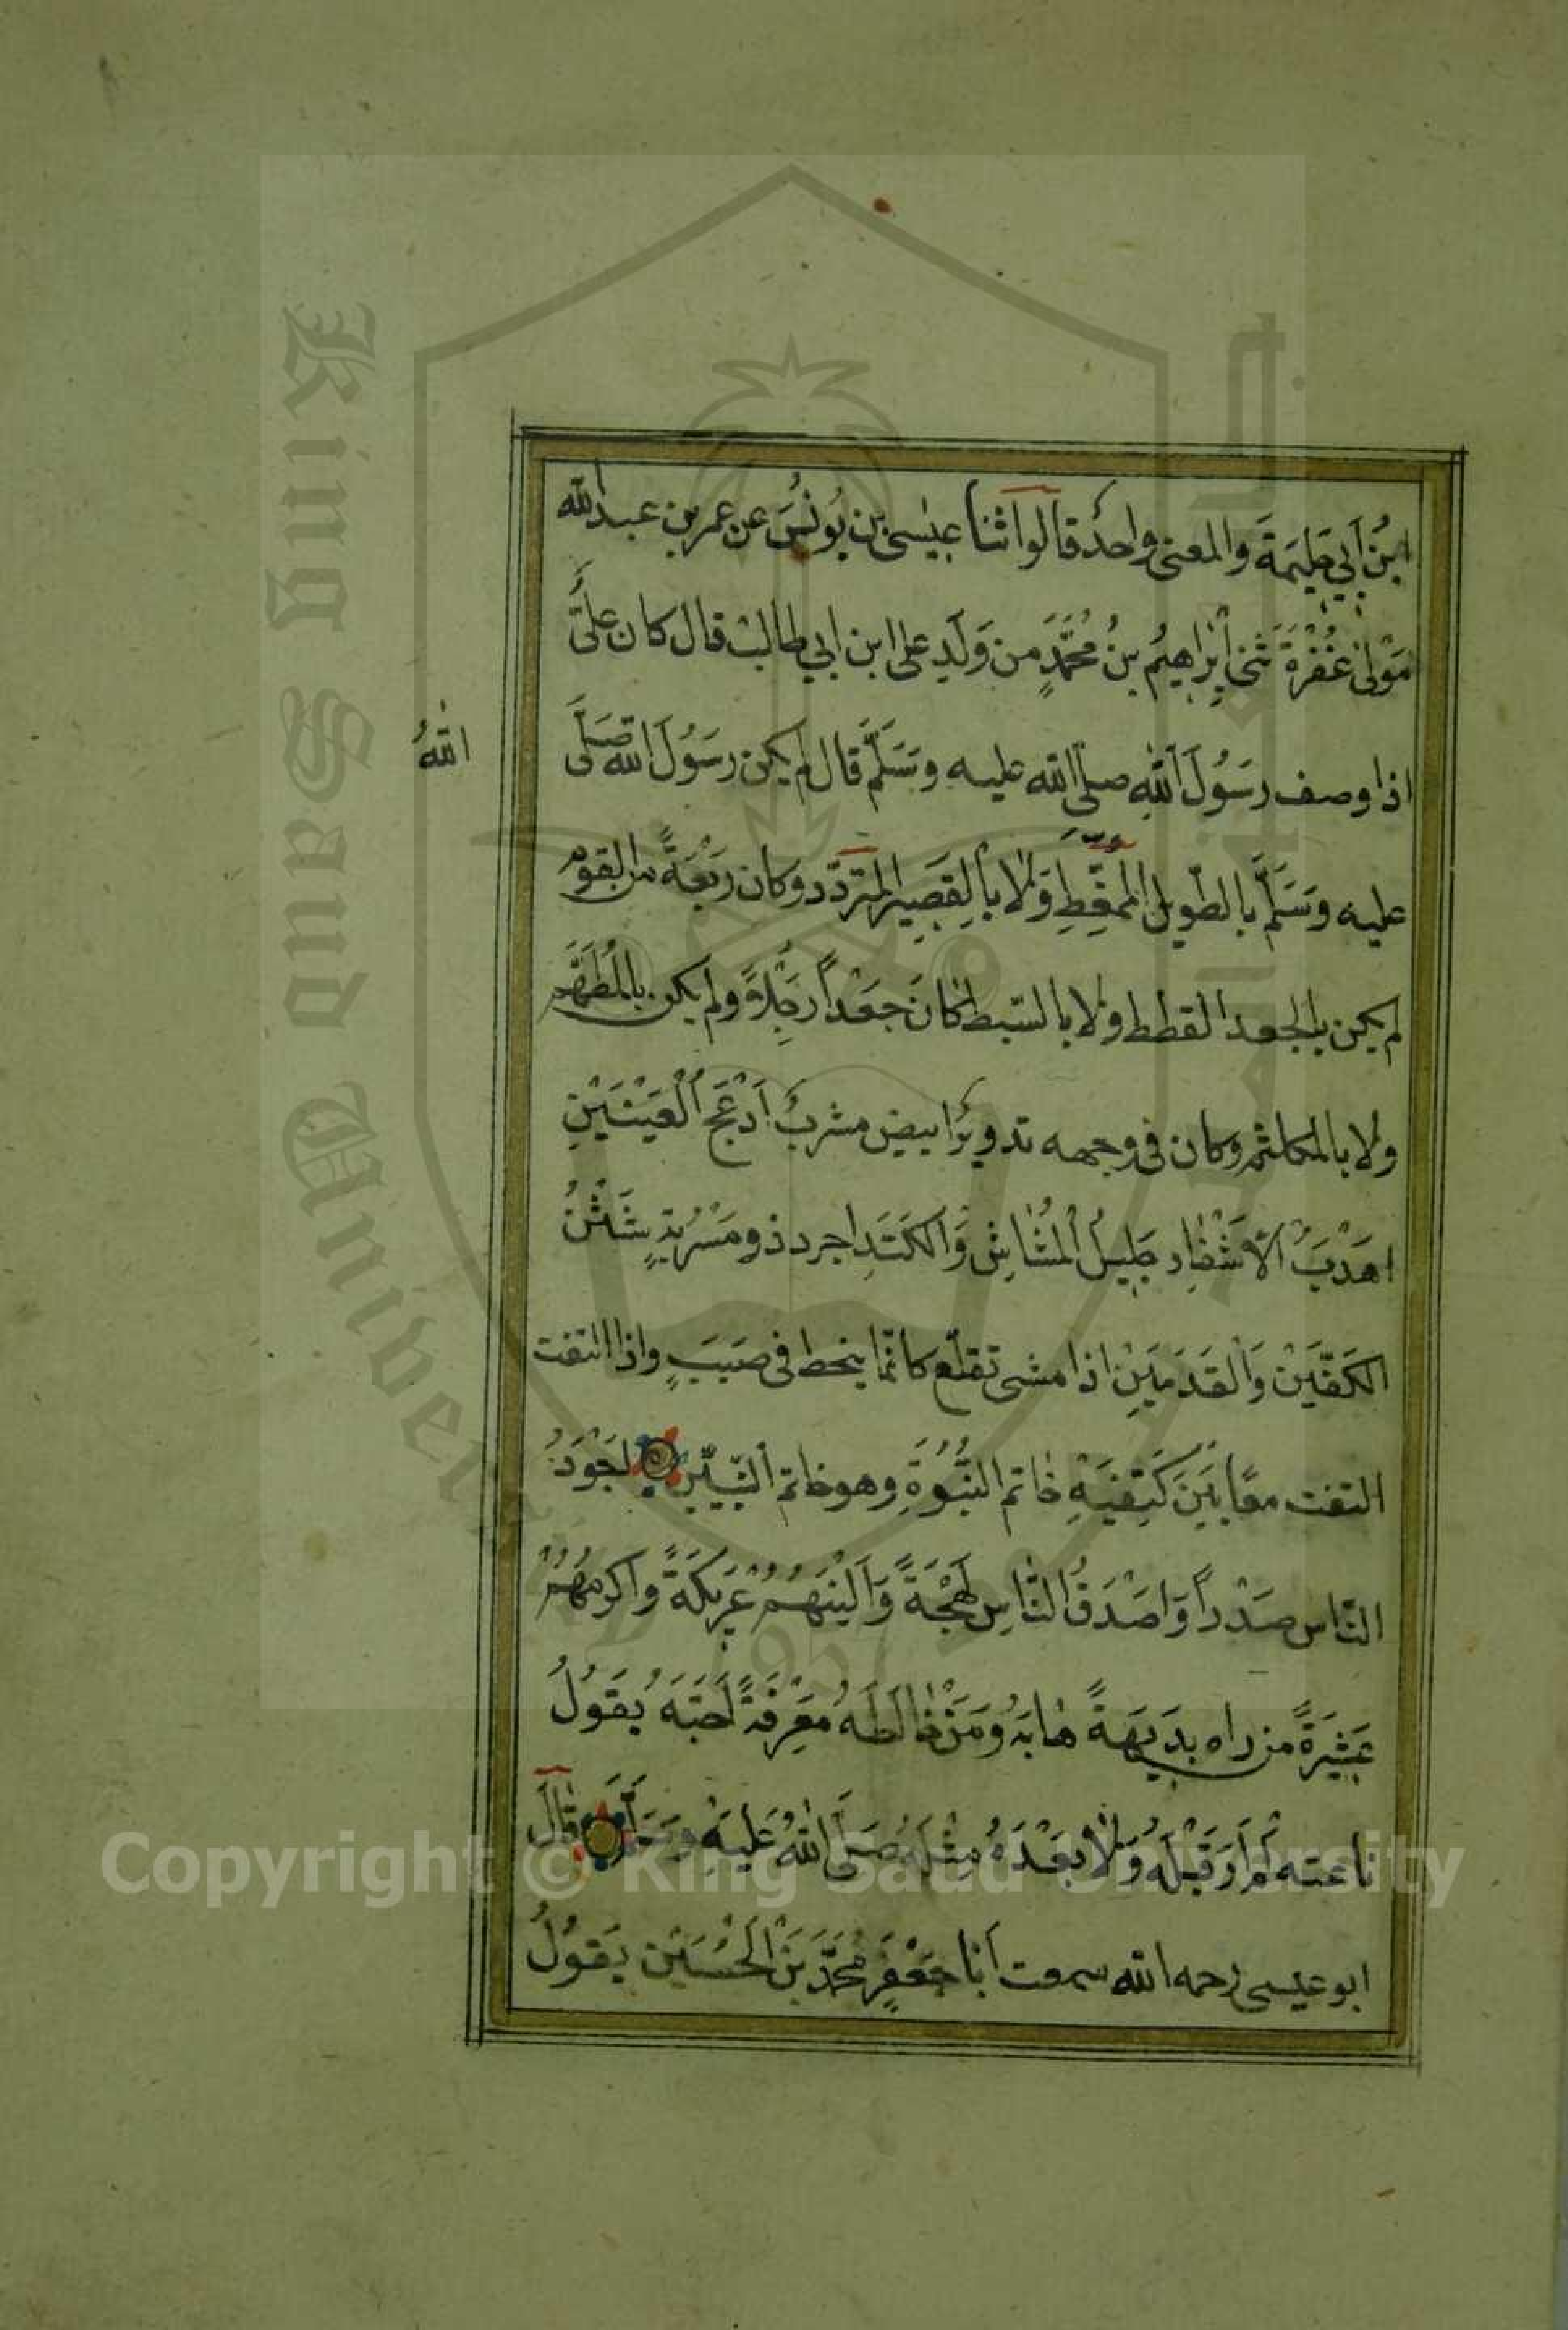 ابنُ أبي حليمَة والمعنى واحدٌ قالوا ثنا عيسى بن يونُسَ عن عمر بن عبد الله
مَوْلى غُفْرَةَ ثنى إبْراهيمُ بنُ مُحَمَّدٍ من وَلَدِ على ابن ابي طالب قال كان عليٌّ
اذا وصف رسَوُلَ اللهِ صلى الله عليه وسَلَّم قال لم يكن رسَوُلَ الله صَلَّى
اللهُ
عليه وسَلَّم بالطّويل الممّغِطِ وَلا بالقصِيرِ المتردّد وكان رَبْعَةً من القوم
لم يكن بالجعد القطط ولا بالسّبط كانَ جَعْداً رَجِلاً ولم يكن بالمُطَهَّم
ولا بالمكلثم وكان فى وجهه تدويرٌ ابيض مشربٌ اَدْعَجُ الْعَيْنَيْنِ
اهَدْبُ الاَشْفارِ جليلُ المُشاشِ وَالكَتَدِ اجرد ذو مَسْرُبةٍ شَثْنُ
الكَفَّيْنْ وَالْقَدَمَيْنِ اذا مشى تقلّع كانّما ينحط فى صَبَبٍ واذا التفت
التفت معًا بَيْنَ كَتِفَيْهِ خاتم النبُّوُةِ وهو خاتم النّبيّين اجْوَدُ
النّاس صَدْراً وَاصْدَقُ النّاسِ لَهْجَةً وَاَلينُهُمْ عَرِيكَةً واكرمُهُمْ
عَشِيْرَةً من راه بدَيهَةً هابَهُ وَمَنْ خالَطَهُ مَعْرِفَةً اَحَبَّهُ يَقوُلُ
ناعته لَمْ اَرَ قَبْلَهُ وَلا بَعْدَهُ مِثْلَهُ صَلّى اللهُ عَلَيْهِ وَسَلَّمَ قالَ
ابو عيسى رحمه الله سمعت اَبا جَعْفَرٍ مُحَمَّدَ بْنَ الْحُسَيْن يَقوُلُ
King Saud University
Copyright © King Saud University